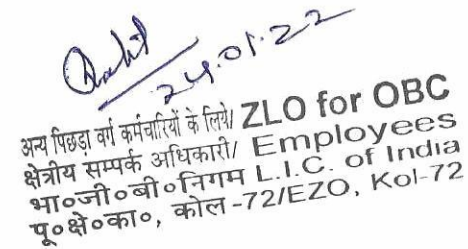 24.01.22
अन्य पिछड़ा वर्ग कर्मचारियों के लिये/ ZLO for OBC
क्षेत्रीय सम्पर्क अधिकारी/ Employees
भा०जी०बी०निगम L.I.C. of India
पू०क्षे०का०, कोल-72/EZO, Kol-72